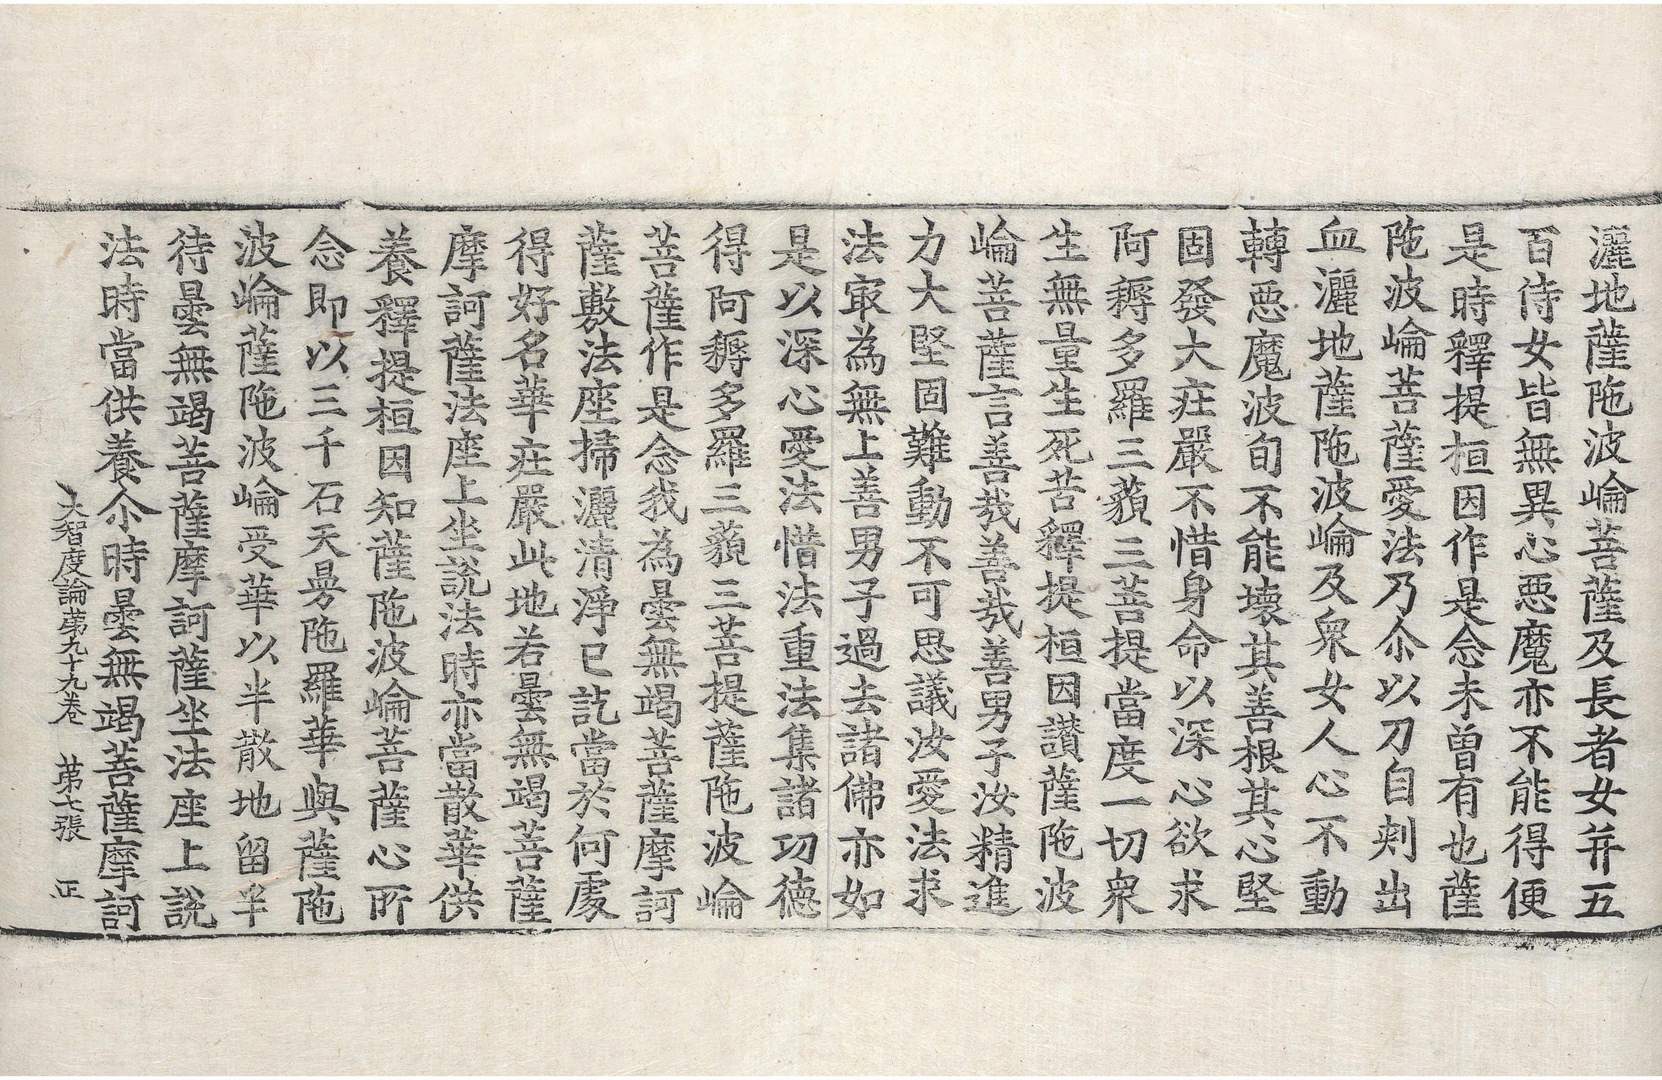 灑地薩陁波崘菩薩及長者女并五
百侍女皆無異心惡魔亦不能得便
是時釋提桓因作是念未曾有也薩
陁波崘菩薩愛法乃尒以刀自刾出
血灑地薩陁波崘及衆女人心不動
轉惡魔波旬不能壞其善根其心堅
固發大疘嚴不惜身命以深心欲求
阿耨多羅三藐三菩提當度一切衆
生無量生死苦釋提桓因讃薩陁波
崘菩薩言善㢤善㢤善男子汝精進
力大堅固難動不可思議汝愛法求
法㝡為無上善男子過去諸佛亦如
是以深心愛法惜法重法集諸㓛德
得阿耨多羅三藐三菩提薩陁波崘
菩薩作是念我為曇無竭菩薩摩訶
薩敷法座掃灑清淨已訖當於何處
得好名華疘嚴此地若曇無竭菩薩
摩訶薩法座上坐說法時亦當散華供
養釋提桓因知薩陁波崘菩薩心所
念即以三千石天曼陁羅華與薩陁
波崘薩陁波崘受華以半散地留半
待曇無竭菩薩摩訶薩坐法座上說
法時當供養尒時曇無竭菩薩摩訶
大智度論苐九十九卷　苐七張　正